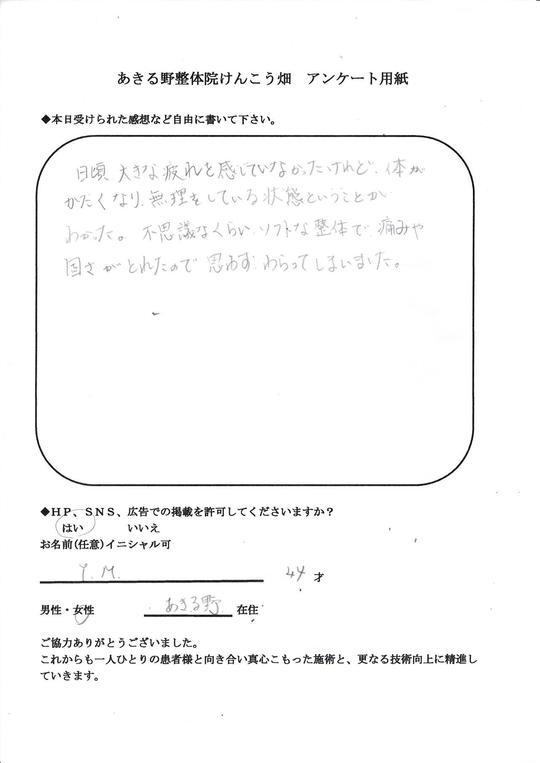 あきる野整体院けんこう畑　アンケート用紙
◆本日受けられた感想など自由に書いて下さい。
日頃 大きな疲れを感じていなかったけれど、体が
かたくなり、無理をしている状態ということが
わかった。不思議なくらい、ソフトな整体で、痛みや
固さがとれたので 思わず わらってしまいました。
◆ＨＰ、ＳＮＳ、広告での掲載を許可してくださいますか？
はい　いいえ
お名前(任意)イニシャル可
Y. M. 44 才
男性・女性 あきる野 在住
ご協力ありがとうございました。
これからも一人ひとりの患者様と向き合い真心こもった施術と、更なる技術向上に精進し
ていきます。